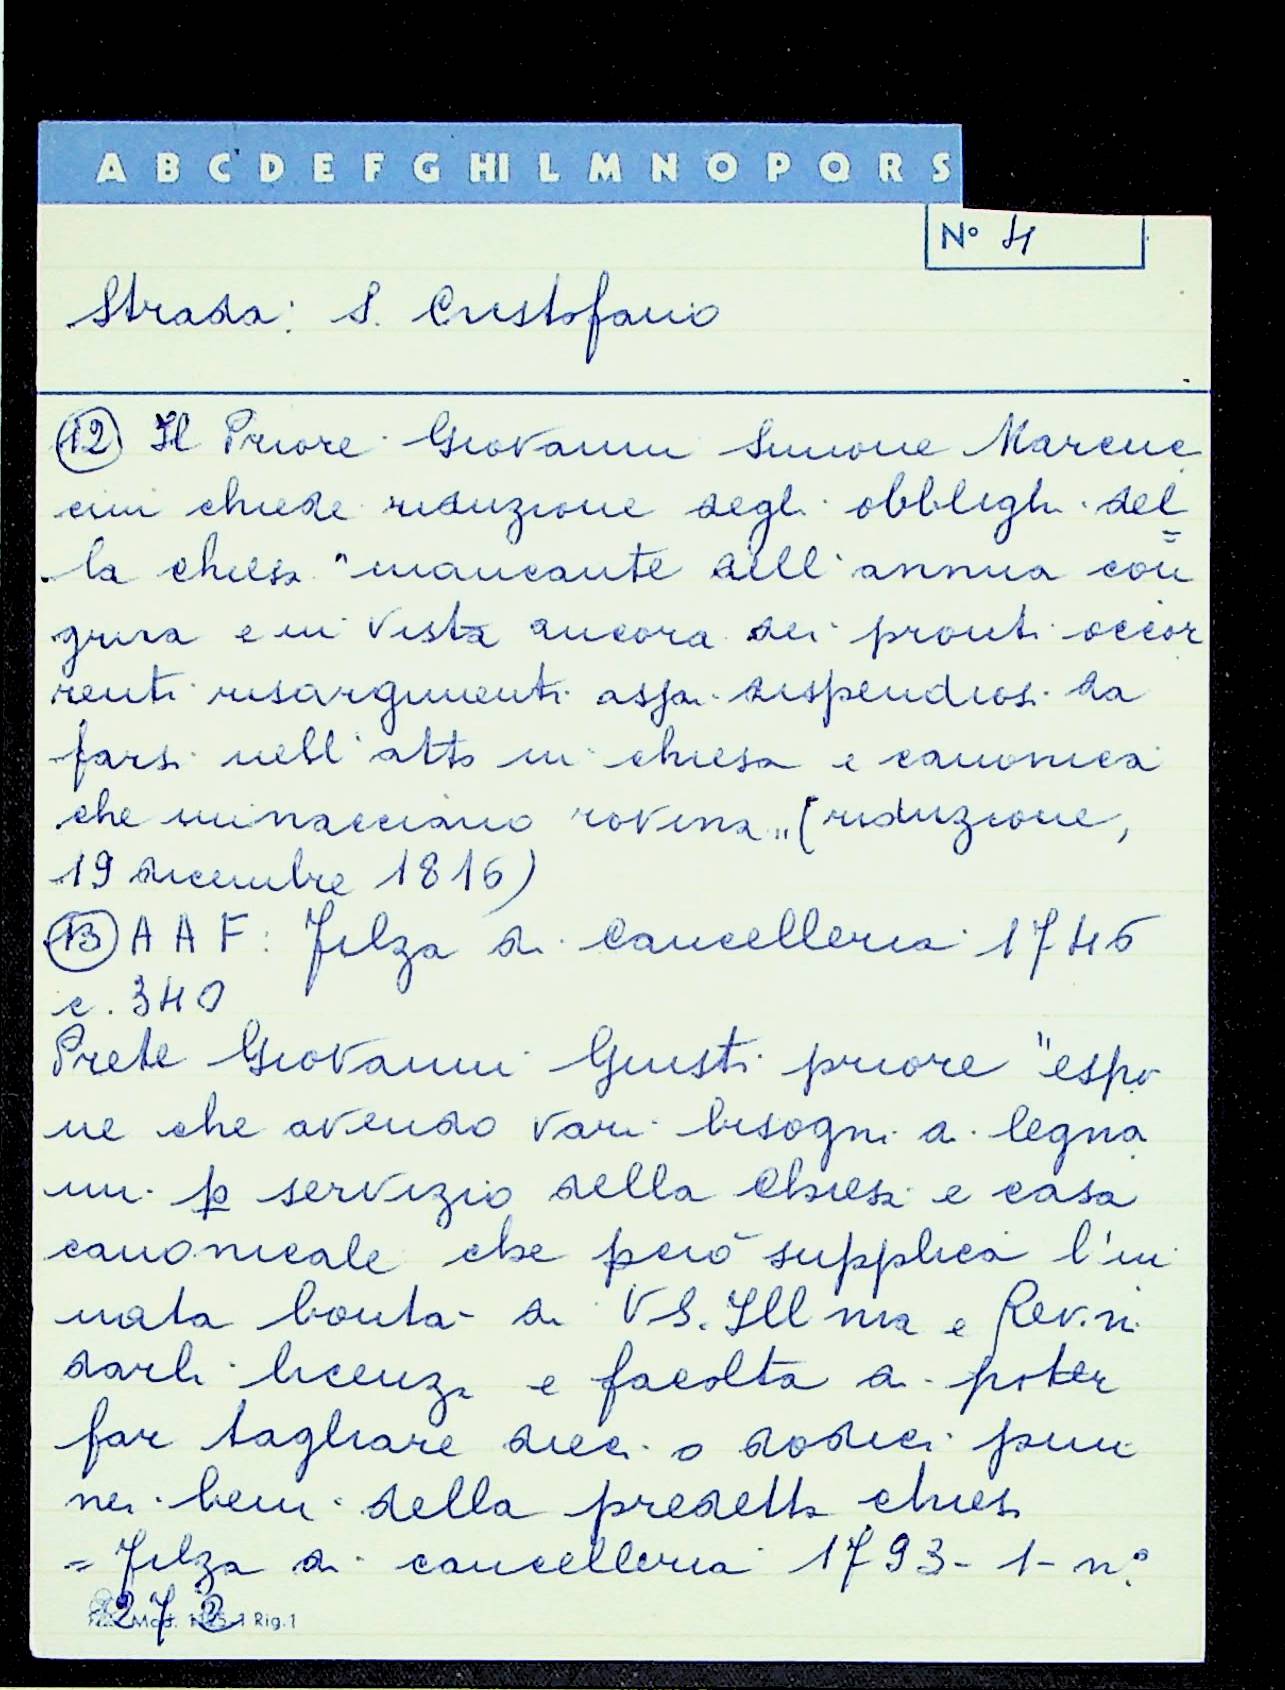 A B C D E F G HI L M N O P Q R S
N° 4
Strada: S. Cristofano
(12) Il Priore Giovanni Simone Marcuc
cini chiede riduzione degli obblighi del=
la chiesa "mancante dell'annua con
grua e in vista ancora dei pronti occor
renti risargimenti assai dispendiosi da
farsi nell'atto in chiesa e canonica
che minacciano rovina" (riduzione,
19 dicembre 1816)
(13) A A F: Filza di cancelleria 1746
c. 340
Prete Giovanni Giusti priore "espo
ne che avendo vari bisogni di legna
mi p servizio della Chiesa e casa
canonicale che però supplica l'in
nata bontà di VS. Ill ma e Rev.
darli licenza e facoltà di poter
far tagliare dieci o dodici pini
nei beni della predetta chiesa
= Filza di cancelleria 1793-1-n°
272
Mod. Rig.1